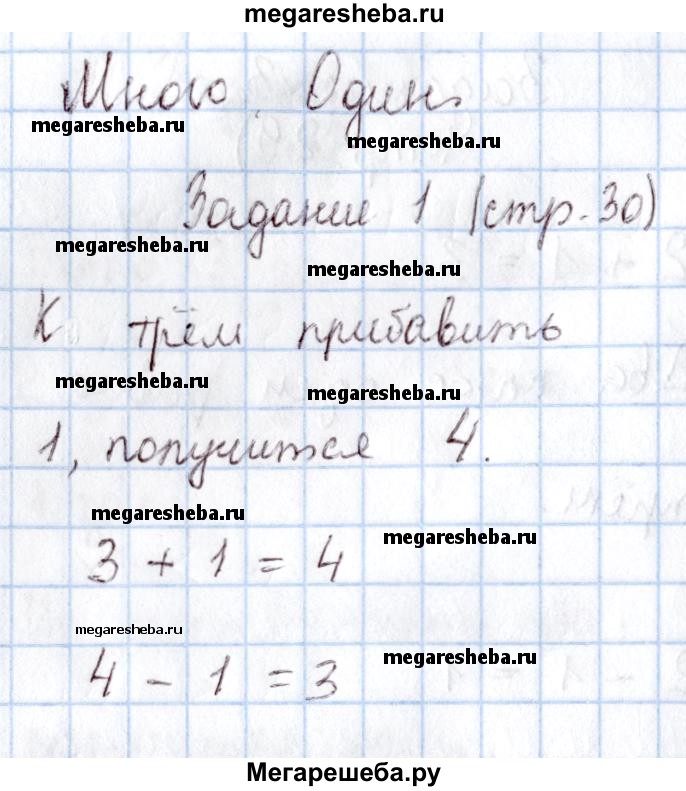 megaresheba.ru
Много. Один.
megaresheba.ru
megaresheba.ru
Задание 1 (стр. 30)
megaresheba.ru
megaresheba.ru
К трём прибавить
megaresheba.ru
megaresheba.ru
1, получится 4.
megaresheba.ru
megaresheba.ru
3 + 1 = 4
megaresheba.ru
megaresheba.ru
4 - 1 = 3
Мегарешеба.ру